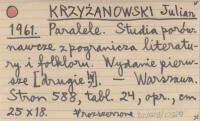 KRZYŻANOWSKI Julian
1961. Paralele. Studia porów-
nawcze z pogranicza literatu-
ry i folkloru. Wydanie pierw-
sze [drugie]. — Warszawa.
Stron 588, tabl. 24, opr., cm
25 x 18. *rozszerzone